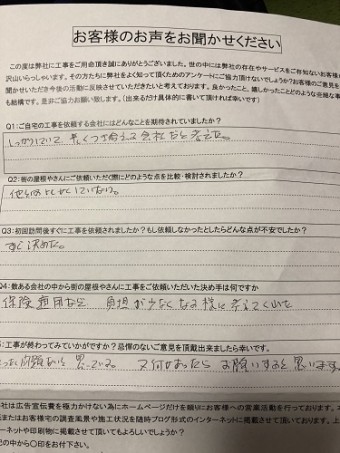 お客様のお声をお聞かせください
この度は弊社に工事をご用命頂き誠にありがとうございました。世の中には弊社の存在やサービスをご存知ないお客様
沢山いらっしゃいます。その方たちに弊社をよく知って頂くためのアンケートにご協力頂けないでしょうか?お客様のご意見を
聞かせいただき今後の活動に反映させていただきたいと考えております。良かったこと、嬉しかったことどのような些細な事
も結構です。是非ご協力お願い致します。(出来るだけ具体的に書いて頂ければ幸いです)
Q1:ご自宅の工事を依頼する会社にはどんなことを期待されていましたか?
しっかりしていて 長くつき合える会社だと
Q2:街の屋根やさんにご依頼いただく際にどのような点を比較・検討されましたか?
他
Q3:初回訪問後すぐに工事を依頼されましたか?もし依頼しなかったとしたらどんな点が不安でしたか?
すぐ決めた。
Q4:数ある会社の中から街の屋根やさんに工事をご依頼いただいた決め手は何ですか
保険適用など 負担が少なくなる様に考えてくれた
:工事が終わってみていかがですか?忌憚のないご意見を頂戴出来ましたら幸いです。
思っている。 又何かあったら お願いすると思います
社は広告宣伝費を極力かけない為にホームページだけを頼りにお客様への営業活動を行っております。
またはお客様宅の調査風景や施工状況を随時ブログ形式のインターネットに掲載させて頂いております。上
ーネットや印刷物に掲載させて頂いてもよろしいでしょうか?
記の中から〇印をお付下さい。